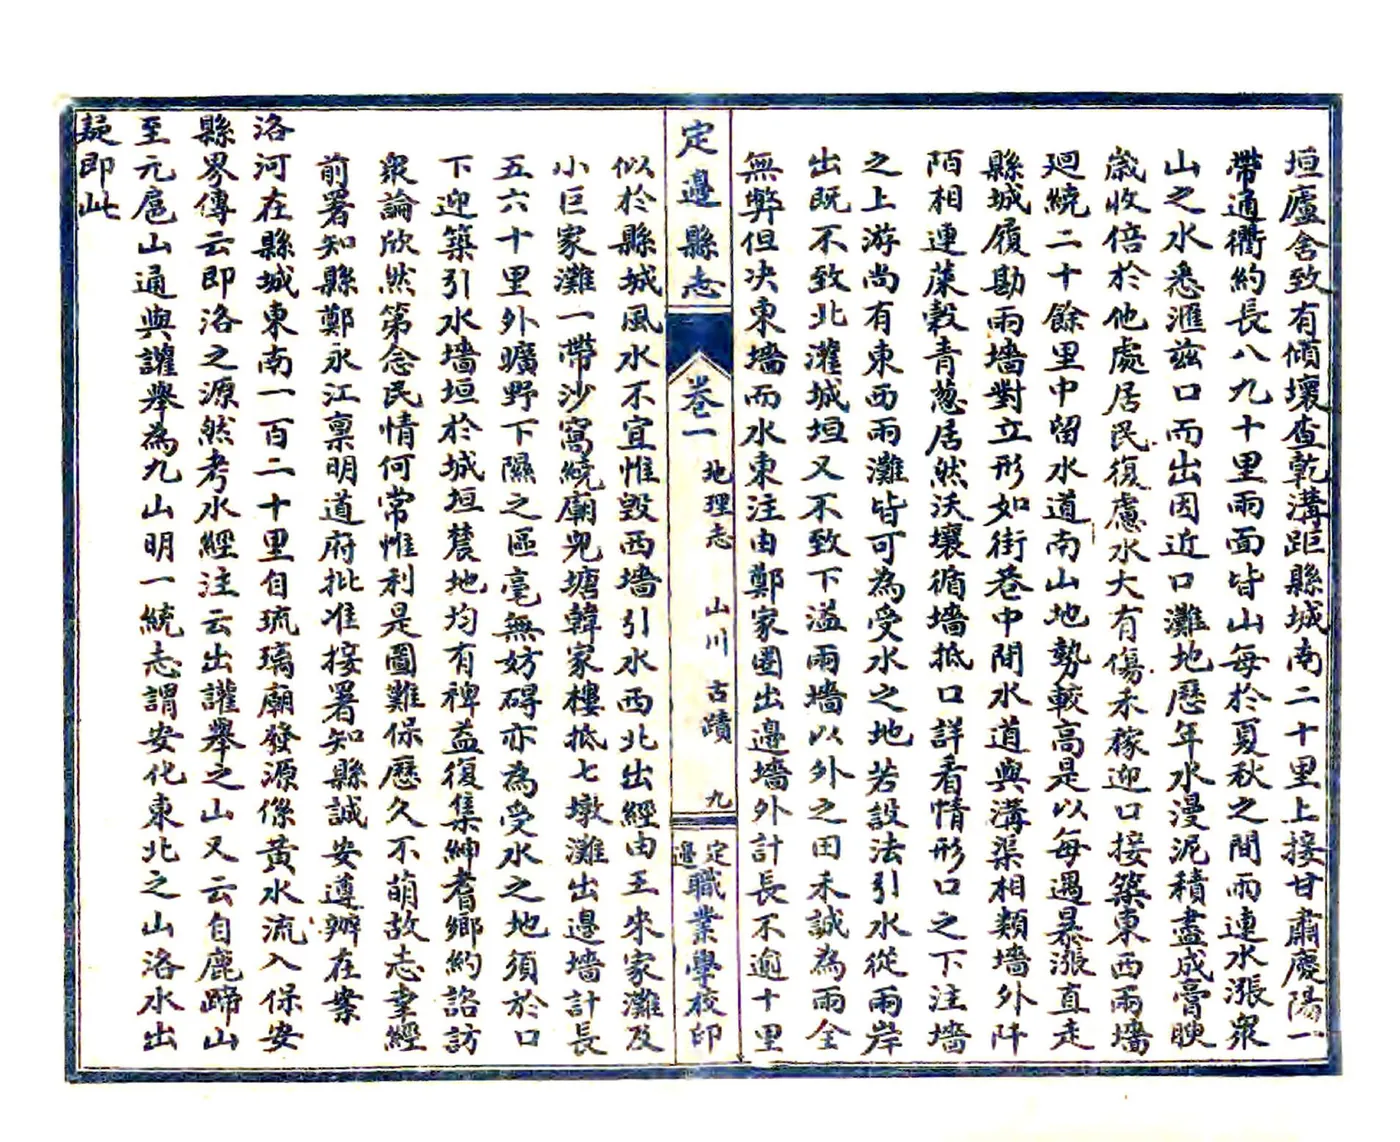 垣廬舍致有傾壞查乾溝距縣城南二十里上接甘肅慶陽一
帶通衢約長八九十里兩面皆山每於夏秋之間雨連水漲衆
山之水悉滙茲口而出因近口灘地歷年水漫泥積盡成膏腴
歲收倍於他處居民復慮水大有傷禾稼迎口接築東西兩墻
廻繞二十餘里中留水道南山地勢較高是以每遇暴漲直走
縣城履勘兩墻對立形如街巷中間水道與溝渠相類墻外阡
陌相連菉穀青葱居然沃壤循墻抵口詳看情形口之下注墻
之上游尚有東西兩灘皆可為受水之地若設法引水從兩岸
出既不致北灌城垣又不致下溢兩墻以外之田禾誠為兩全
無弊但决東墻而水東注由鄭家圈出邊墻外計長不逾十里
定邊縣志
卷一
地理志 山川 古蹟 九
定邊職業學校印
似於縣城風水不宜惟毀西墻引水西北出經由王來家灘及
小巨家灘一帶沙窩繞廟兒塘韓家樓抵七墩灘出邊墻計長
五六十里外曠野下隰之區毫無妨碍亦為受水之地須於口
下迎築引水墻垣於城垣蓐地均有裨益復集紳耆鄉約諮訪
衆論欣然第念民情何常惟利是圖難保歷久不萌故志聿經
前署知縣鄭永江稟明道府批准接署知縣誠安遵辦在案
洛河在縣城東南一百二十里自琉璃廟發源係黃水流入保安
縣界傳云即洛之源然考水經注云出讙舉之山又云自鹿蹄山
至元扈山通與讙舉為九山明一統志謂安化東北之山洛水出
疑即此